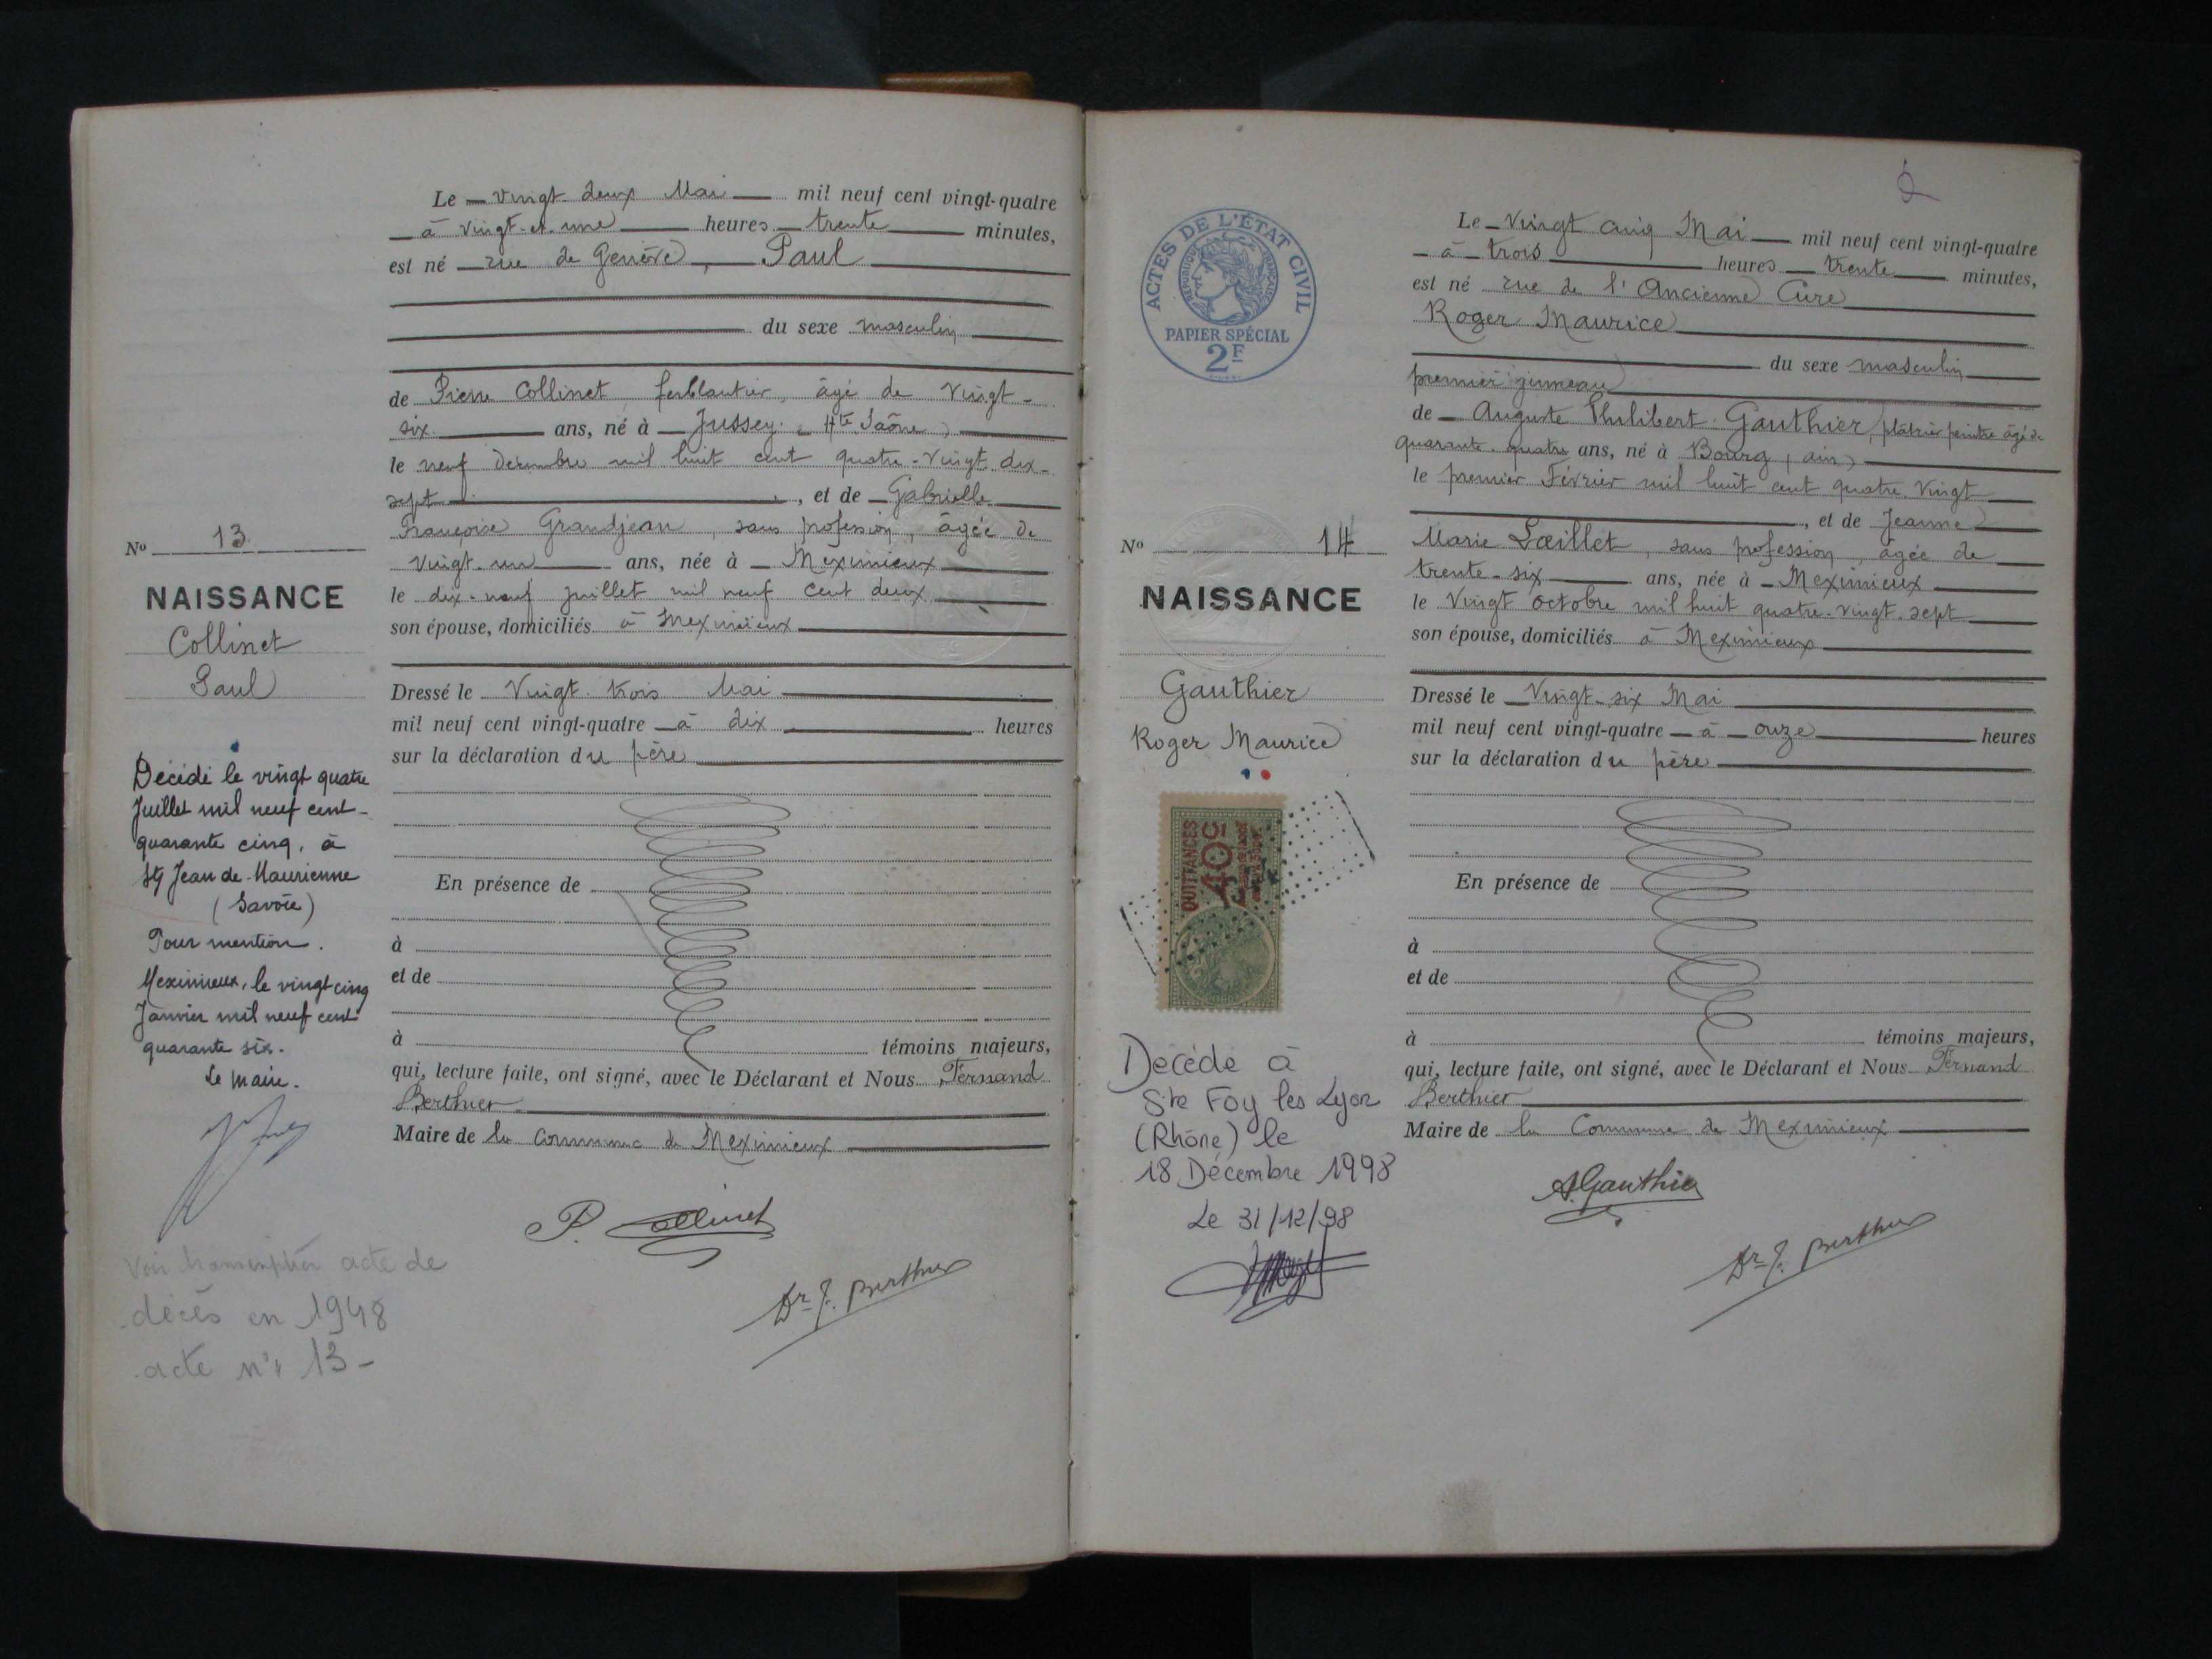 Le vingt deux Mai mil neuf cent vingt-quatre
à vingt-et-une heures trente minutes,
est né rue de Genève, Paul
du sexe masculin
de Pierre Collinet ferblantier, âgé de vingt-
six ans, né à Jussey (Hte Saône)
le neuf décembre mil huit cent quatre-vingt dix-
sept, et de Gabrielle
Françoise Grandjean, sans profession, âgée de
vingt-un ans, née à Meximieux
le dix-neuf juillet mil neuf cent deux
son épouse, domiciliés à Meximieux
Dressé le Vingt trois Mai
mil neuf cent vingt-quatre à dix heures
sur la déclaration du père
En présence de
à
et de
à témoins majeurs,
qui, lecture faite, ont signé, avec le Déclarant et Nous Fernand
Berthier
Maire de la Commune de Meximieux
P. Collinet
Dr F. Berthier
No 13
NAISSANCE
Collinet
Paul
Décédé le vingt quatre
Juillet mil neuf cent-
quarante cinq, à
St Jean de Maurienne
(Savoie)
Pour mention.
Meximieux, le vingt cinq
Janvier mil neuf cent
quarante six.
Le Maire.
Voir transcription acte de
décès en 1948
acte n° 13-
2
ACTES DE L'ÉTAT CIVIL
RÉPUBLIQUE FRANÇAISE
PAPIER SPÉCIAL
2F
No 14
NAISSANCE
Gauthier
Roger Maurice
QUITTANCES
40c
Décédé à
Ste Foy les Lyon
(Rhône) le
18 Décembre 1998
Le 31/12/98
Le Vingt cinq Mai mil neuf cent vingt-quatre
à trois heures trente minutes,
est né rue de l'Ancienne Cure
Roger Maurice
du sexe masculin
premier jumeau
de Auguste Philibert Gauthier, plâtrier peintre âgé de
quarante-quatre ans, né à Bourg (ain)
le premier Février mil huit cent quatre-vingt
, et de Jeanne
Marie Lœillet, sans profession, âgée de
trente-six ans, née à Meximieux
le Vingt octobre mil huit quatre-vingt-sept
son épouse, domiciliés à Meximieux
Dressé le Vingt-six Mai
mil neuf cent vingt-quatre à onze heures
sur la déclaration du père
En présence de
à
et de
à témoins majeurs,
qui, lecture faite, ont signé, avec le Déclarant et Nous Fernand
Berthier
Maire de la Commune de Meximieux
A. Gauthier
Dr F. Berthier